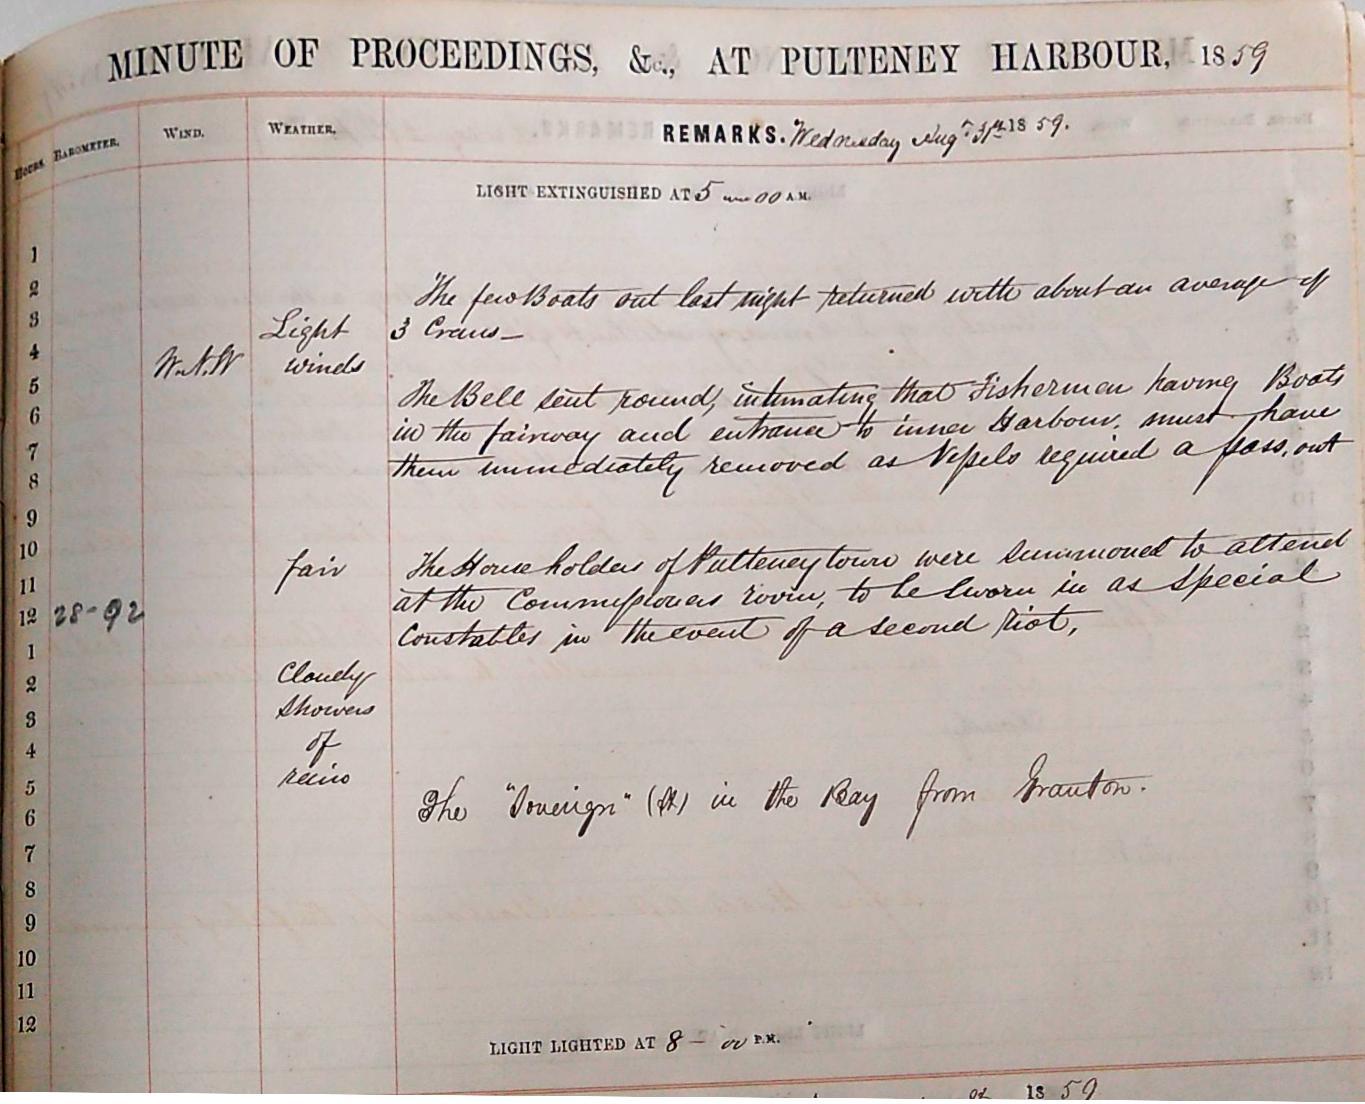 MINUTE OF PROCEEDINGS, &c., AT PULTENEY HARBOUR, 1859
HOURS. BAROMETER. WIND. WEATHER. REMARKS. Wednesday Augt 31st 1859.
LIGHT EXTINGUISHED AT 5 — 00 A.M.
1
2 The few Boats out last night returned with about an average of
3 Light 3 Crans —
4 W.N.W winds
5 The Bell sent round, intimating that Fishermen having Boats
6 in the fairway and entrance to inner Harbour, must have
7 them immediately removed as Vessels required a pass, out
8
9
10 fair The House holders of Pulteneytown were summoned to attend
11 at the Commissioners room, to be Sworn in as Special
12 28-92 Constables in the event of a second riot,
1
2 Cloudy
3 Showers
4 of
5 rain The "Soverign" (St) in the Bay from Granton.
6
7
8
9
10
11
12
LIGHT LIGHTED AT 8 — 00 P.M.
1859